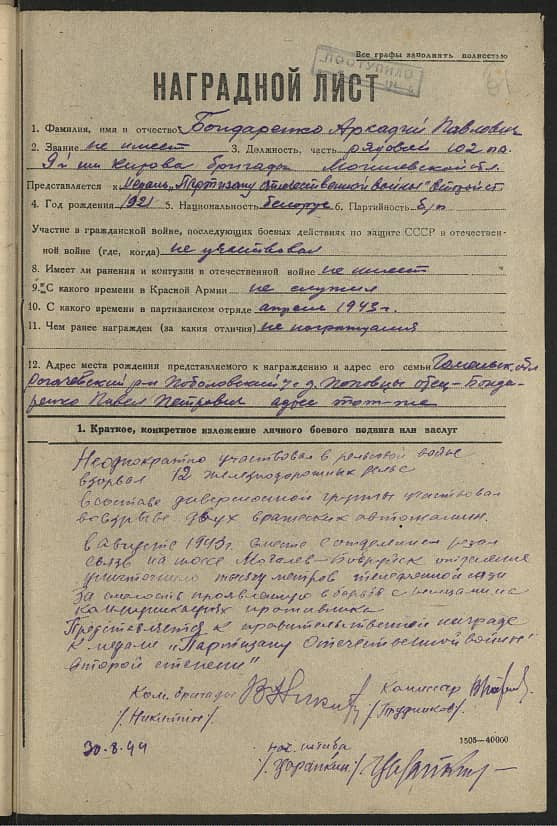 Все графы заполнять полностью
ПОСТУПИЛО
НАГРАДНОЙ ЛИСТ
1. Фамилия, имя и отчество Бондаренко Аркадий Павлович
2. Звание не имеет 3. Должность, часть рядовой 102 по.
им Кирова бригады Могилевской обл.
Представляется к Медаль „Партизану отечественной войны"
4. Год рождения 1921 5. Национальность белорус 6. Партийность б/п
Участие в гражданской войне, последующих боевых действиях по защите СССР в отечествен-
ной войне (где, когда) не участвовал
8. Имеет ли ранения и контузии в отечественной войне не имеет
9. С какого времени в Красной Армии не служил
10. С какого времени в партизанском отряде апрель 1943 г.
11. Чем ранее награжден (за какия отличия) не награждался
12. Адрес места рождения представляемого к награждению и адрес его семьи Гомельск. обл
Рогачевский р-н Поболовский с/с д. Поповцы отец-Бонда-
ренко Павел Петрович адрес тот-же
1. Краткое, конкретное изложение личного боевого подвига или заслуг
Неоднократно участвовал в рельсовой войне
взорвал 12 железнодорожных рельс
в составе диверсионной группы участвовал
во взрыве двух вражеских автомашин.
в августе 1943г. вместе с отделением резал
связь на шоссе Могилев-Бобруйск отделения
уничтожило тысячу метров телефонной связи
За смелость проявленную в борьбе с немцами на
коммуникациях противника
Представляется к правительственной награде
к медали „Партизану Отечественной войны
второй степени"
Ком. бригады Комиссар
/Никитин/ /Прудников/
30.8.44 1505—40000
нач. штаба